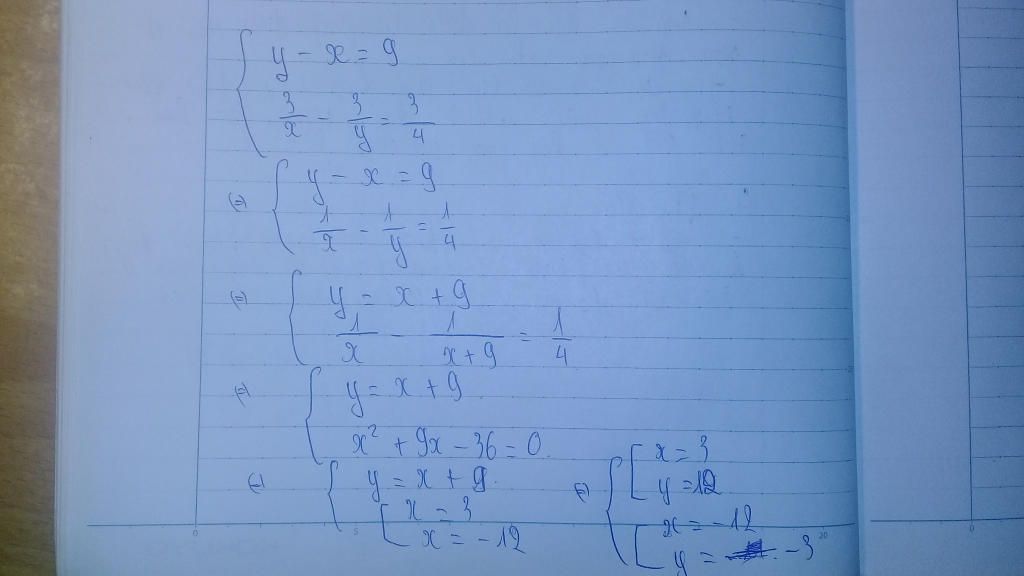 y - x = 9
3/x - 3/y = 3/4
(=) y - x = 9
1/x - 1/y = 1/4
(=) y = x + 9
1/x - 1/(x+9) = 1/4
(=) y = x + 9
x² + 9x - 36 = 0.
(=) y = x + 9.
x = 3
x = -12
(=) x = 3
y = 12
x = -12
y = -3
0
5
20
0